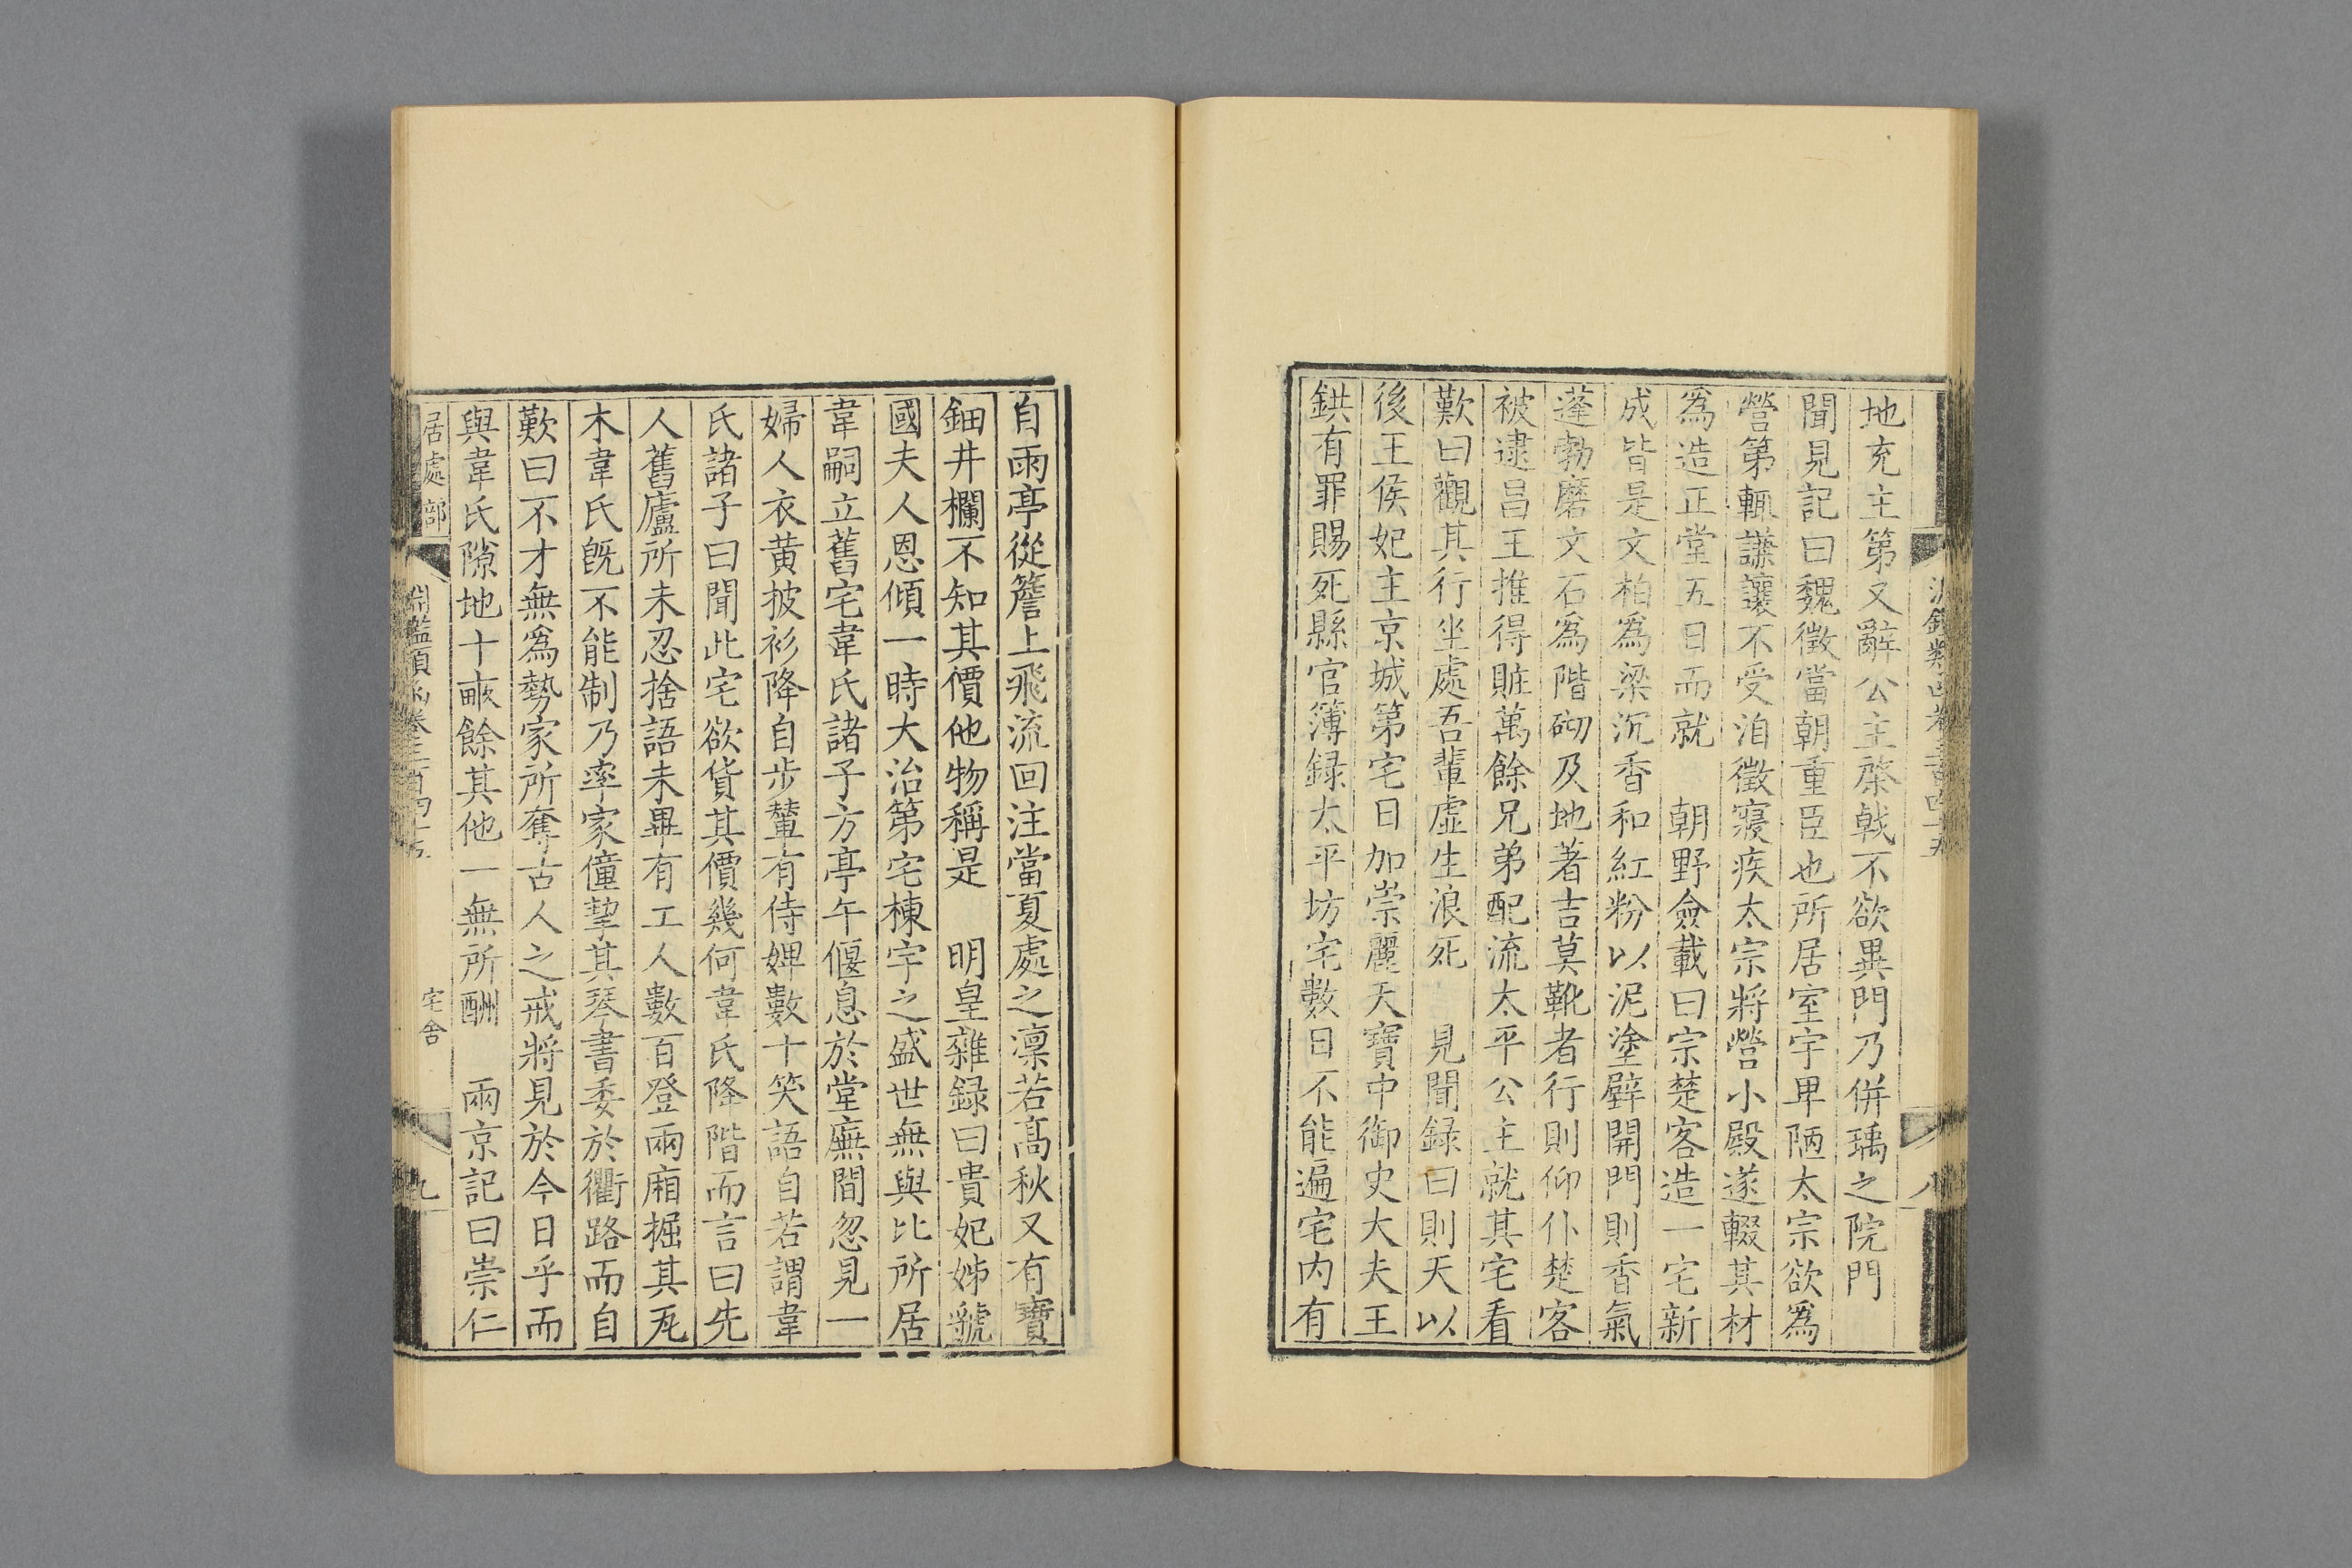 地充主第又辭公主棨戟不欲異門乃併瑀之院門
聞見記曰魏徵當朝重臣也所居室宇卑陋太宗欲爲
營第輒謙讓不受洎徵寢疾太宗將營小殿遂輟其材
爲造正堂五日而就　朝野僉載曰宗楚客造一宅新
成皆是文柏爲梁沉香和紅粉以泥塗壁開門則香氣
蓬勃磨文石爲階砌及地著吉莫靴者行則仰仆楚客
被逮昌王推得贓萬餘兄弟配流太平公主就其宅看
歎曰觀其行坐處吾輩虛生浪死　見聞録曰則天以
後王侯妃主京城第宅日加崇麗天寶中御史大夫王
鉷有罪賜死縣官簿録太平坊宅數日不能遍宅内有
自雨亭從簷上飛流回注當夏處之凛若髙秋又有寶
鈿井欄不知其價他物稱是　明皇雜録曰貴妃姊虢
國夫人恩傾一時大治第宅棟宇之盛世無與比所居
韋嗣立舊宅韋氏諸子方亭午偃息於堂廡間忽見一
婦人衣黄披衫降自步輦有侍婢數十笑語自若謂韋
氏諸子曰聞此宅欲貨其價幾何韋氏降階而言曰先
人舊廬所未忍捨語未畢有工人數百登兩廂掘其瓦
木韋氏旣不能制乃率家僮挈其琴書委於衢路而自
歎曰不才無爲勢家所奪古人之戒將見於今日乎而
與韋氏隙地十畝餘其他一無所酬　兩京記曰崇仁
居處部
卷三百四十五
宅舍
九